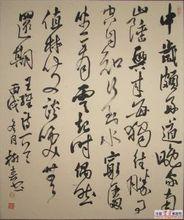 中歲頗好道晚家南
山陲興來每獨往勝事
空自知行到水窮處
坐看雲起時偶然
值林叟談笑無
還期 王維